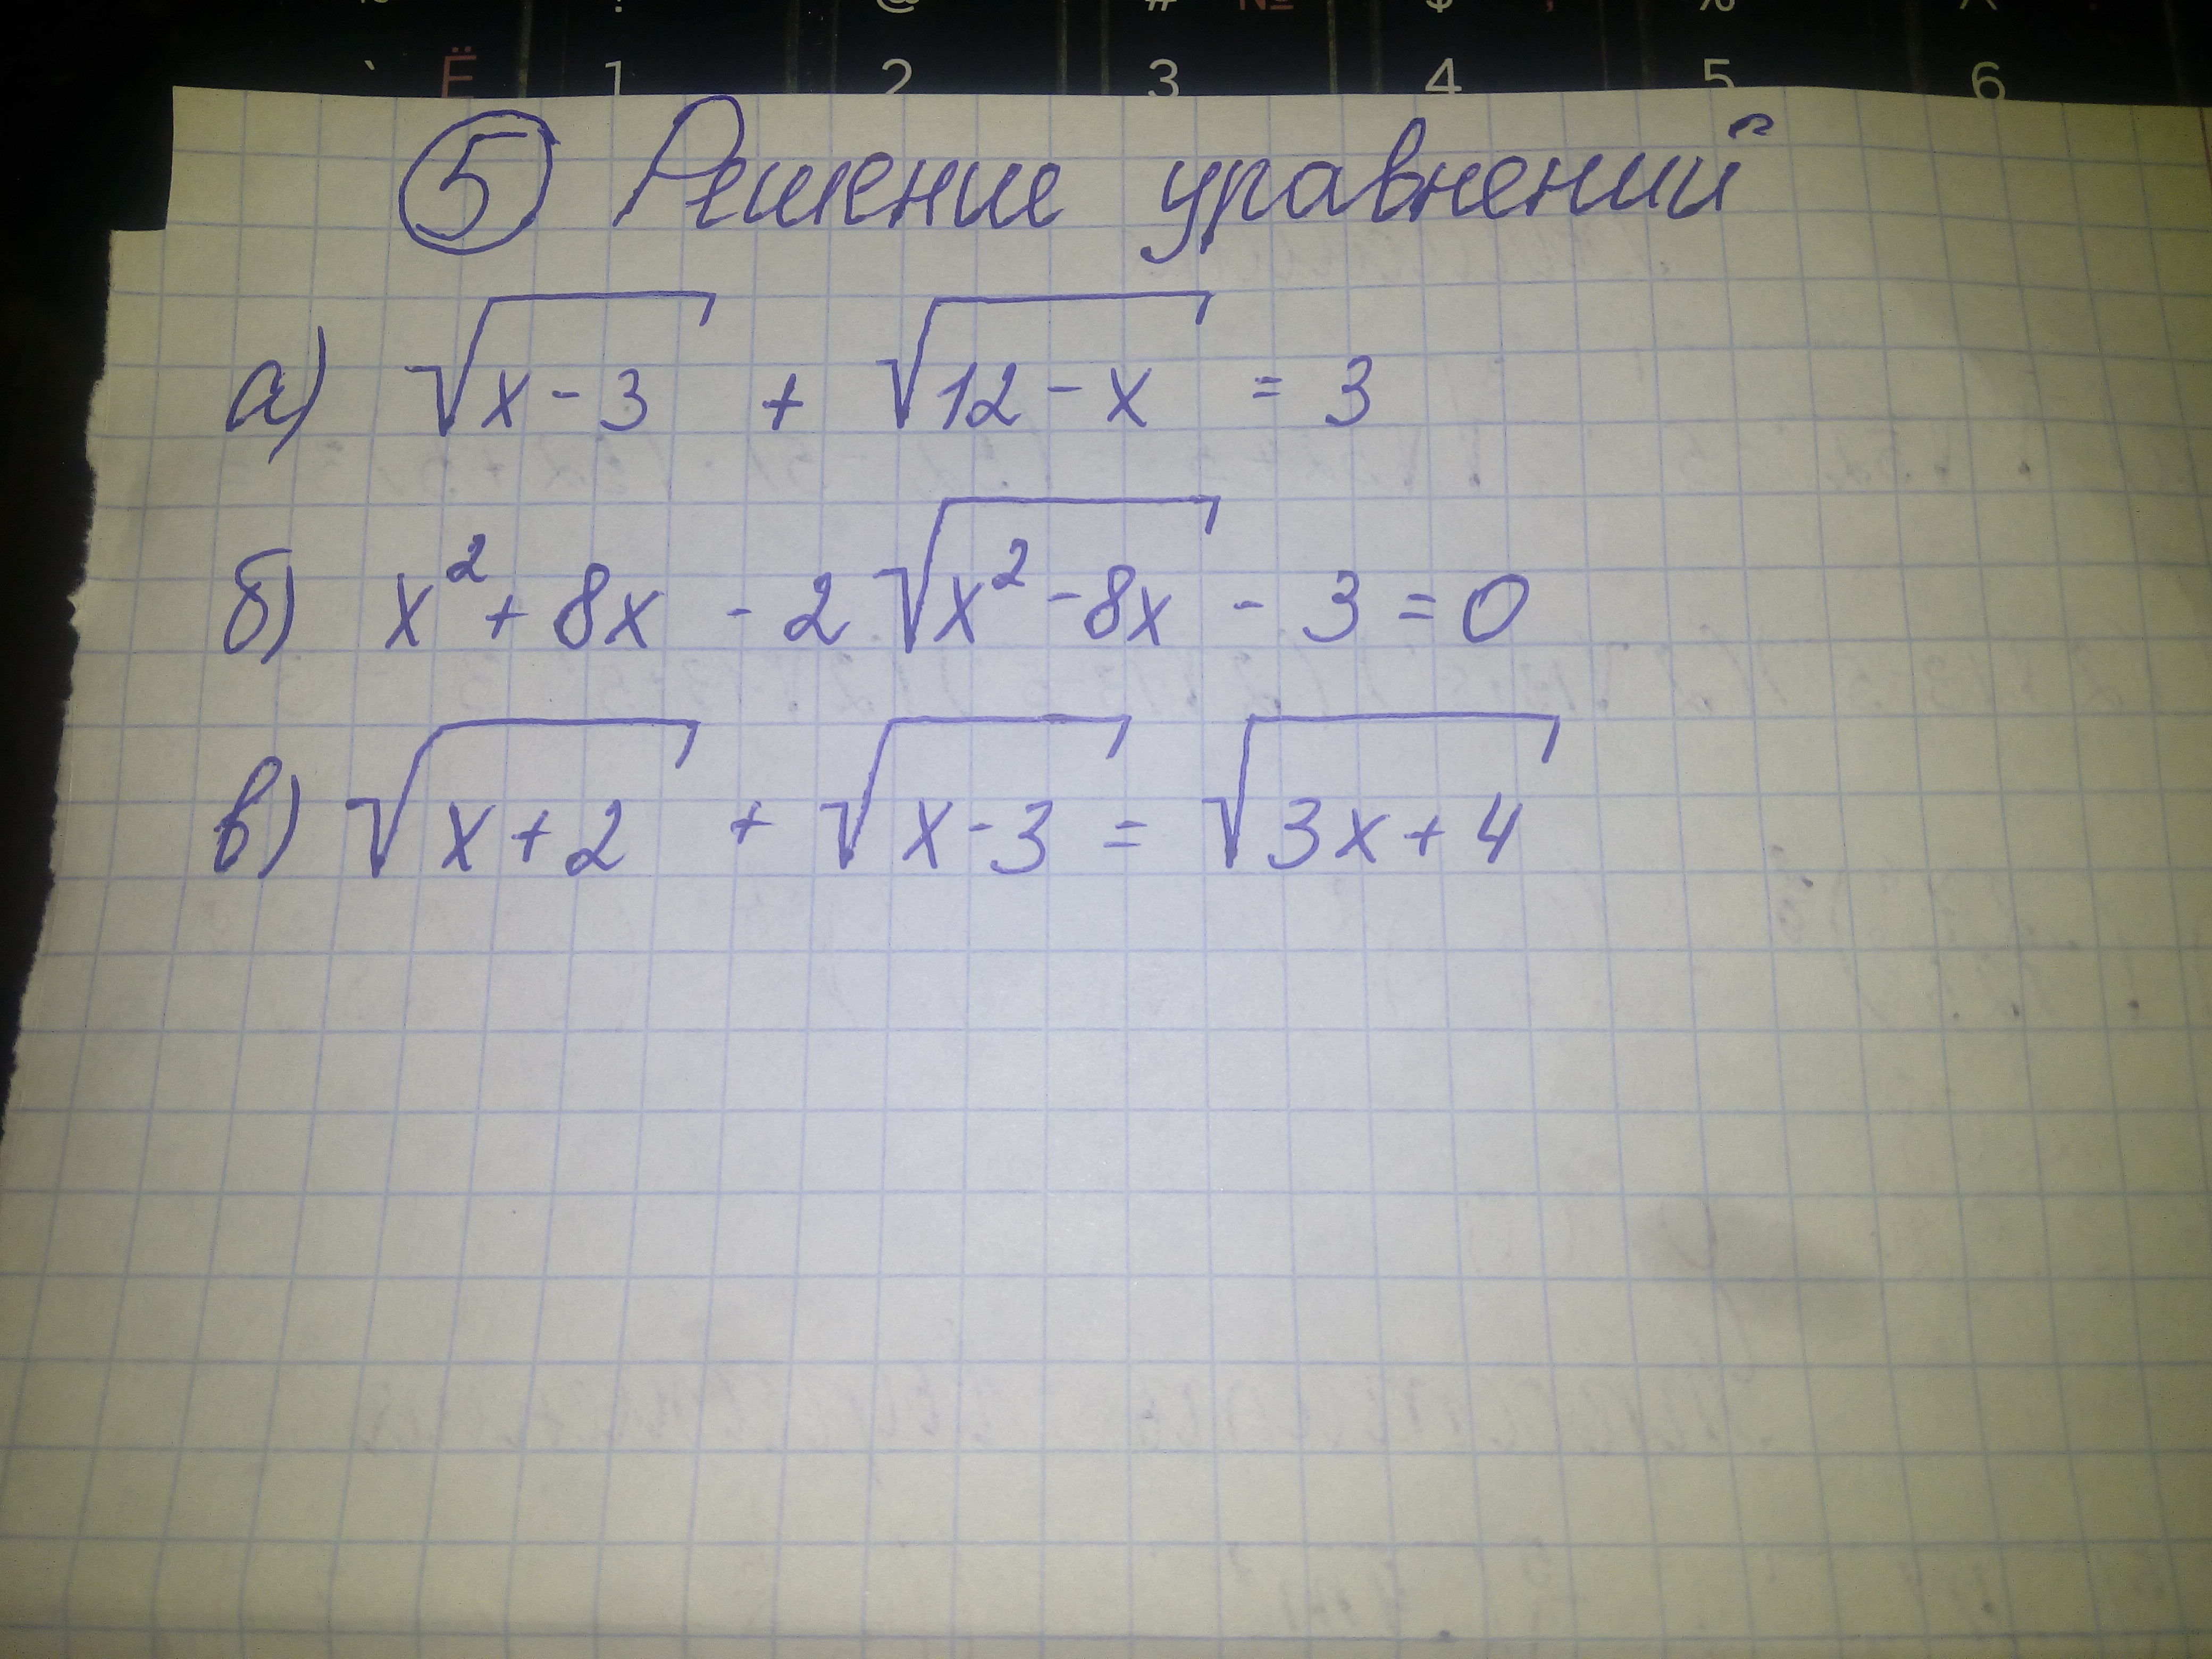 ` Ё 1 2 3 4 5 6
⑤ Решение уравнений
а) √(x-3) + √(12-x) = 3
б) x² + 8x - 2√(x²-8x) - 3 = 0
в) √(x+2) + √(x-3) = √(3x+4)